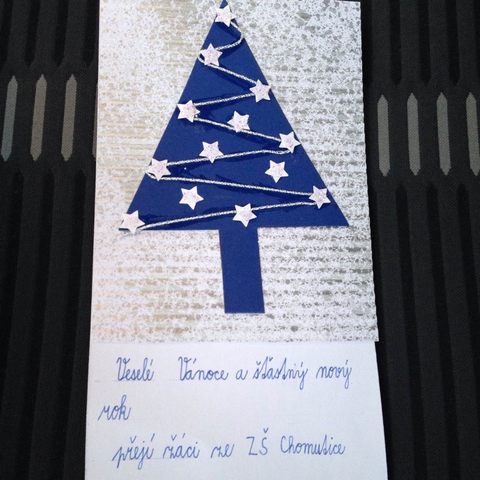 Veselé Vánoce a šťastný nový
rok
přejí žáci ze ZŠ Chomutice